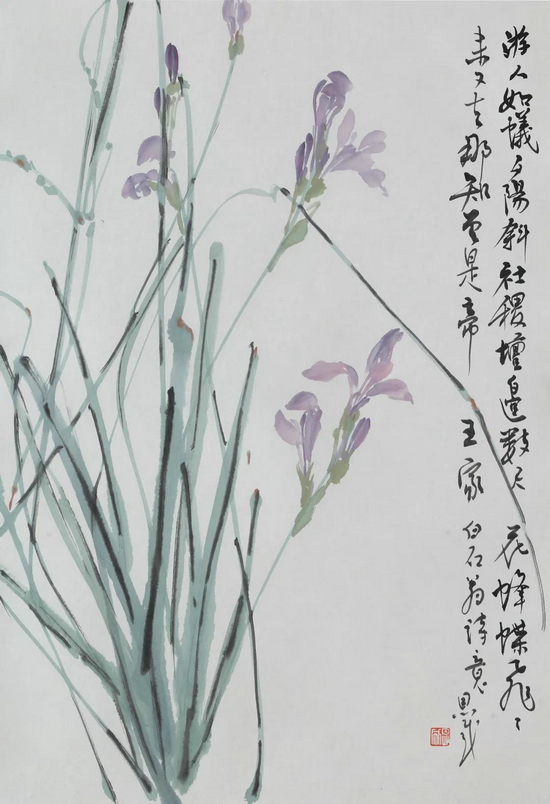 游人如蟻夕陽斜社稷壇邊數尺花蜂蝶飛飛
來又去那知曾是帝王家白石翁詩意思